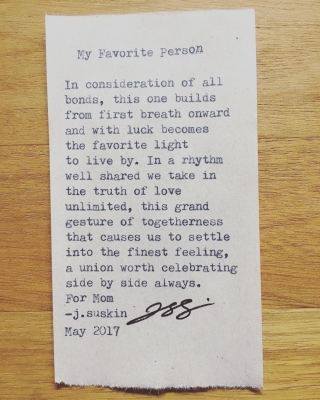 My Favorite Person
In consideration of all
bonds, this one builds
from first breath onward
and with luck becomes
the favorite light
to live by. In a rhythm
well shared we take in
the truth of love
unlimited, this grand
gesture of togetherness
that causes us to settle
into the finest feeling,
a union worth celebrating
side by side always.
For Mom
-j.suskin
May 2017